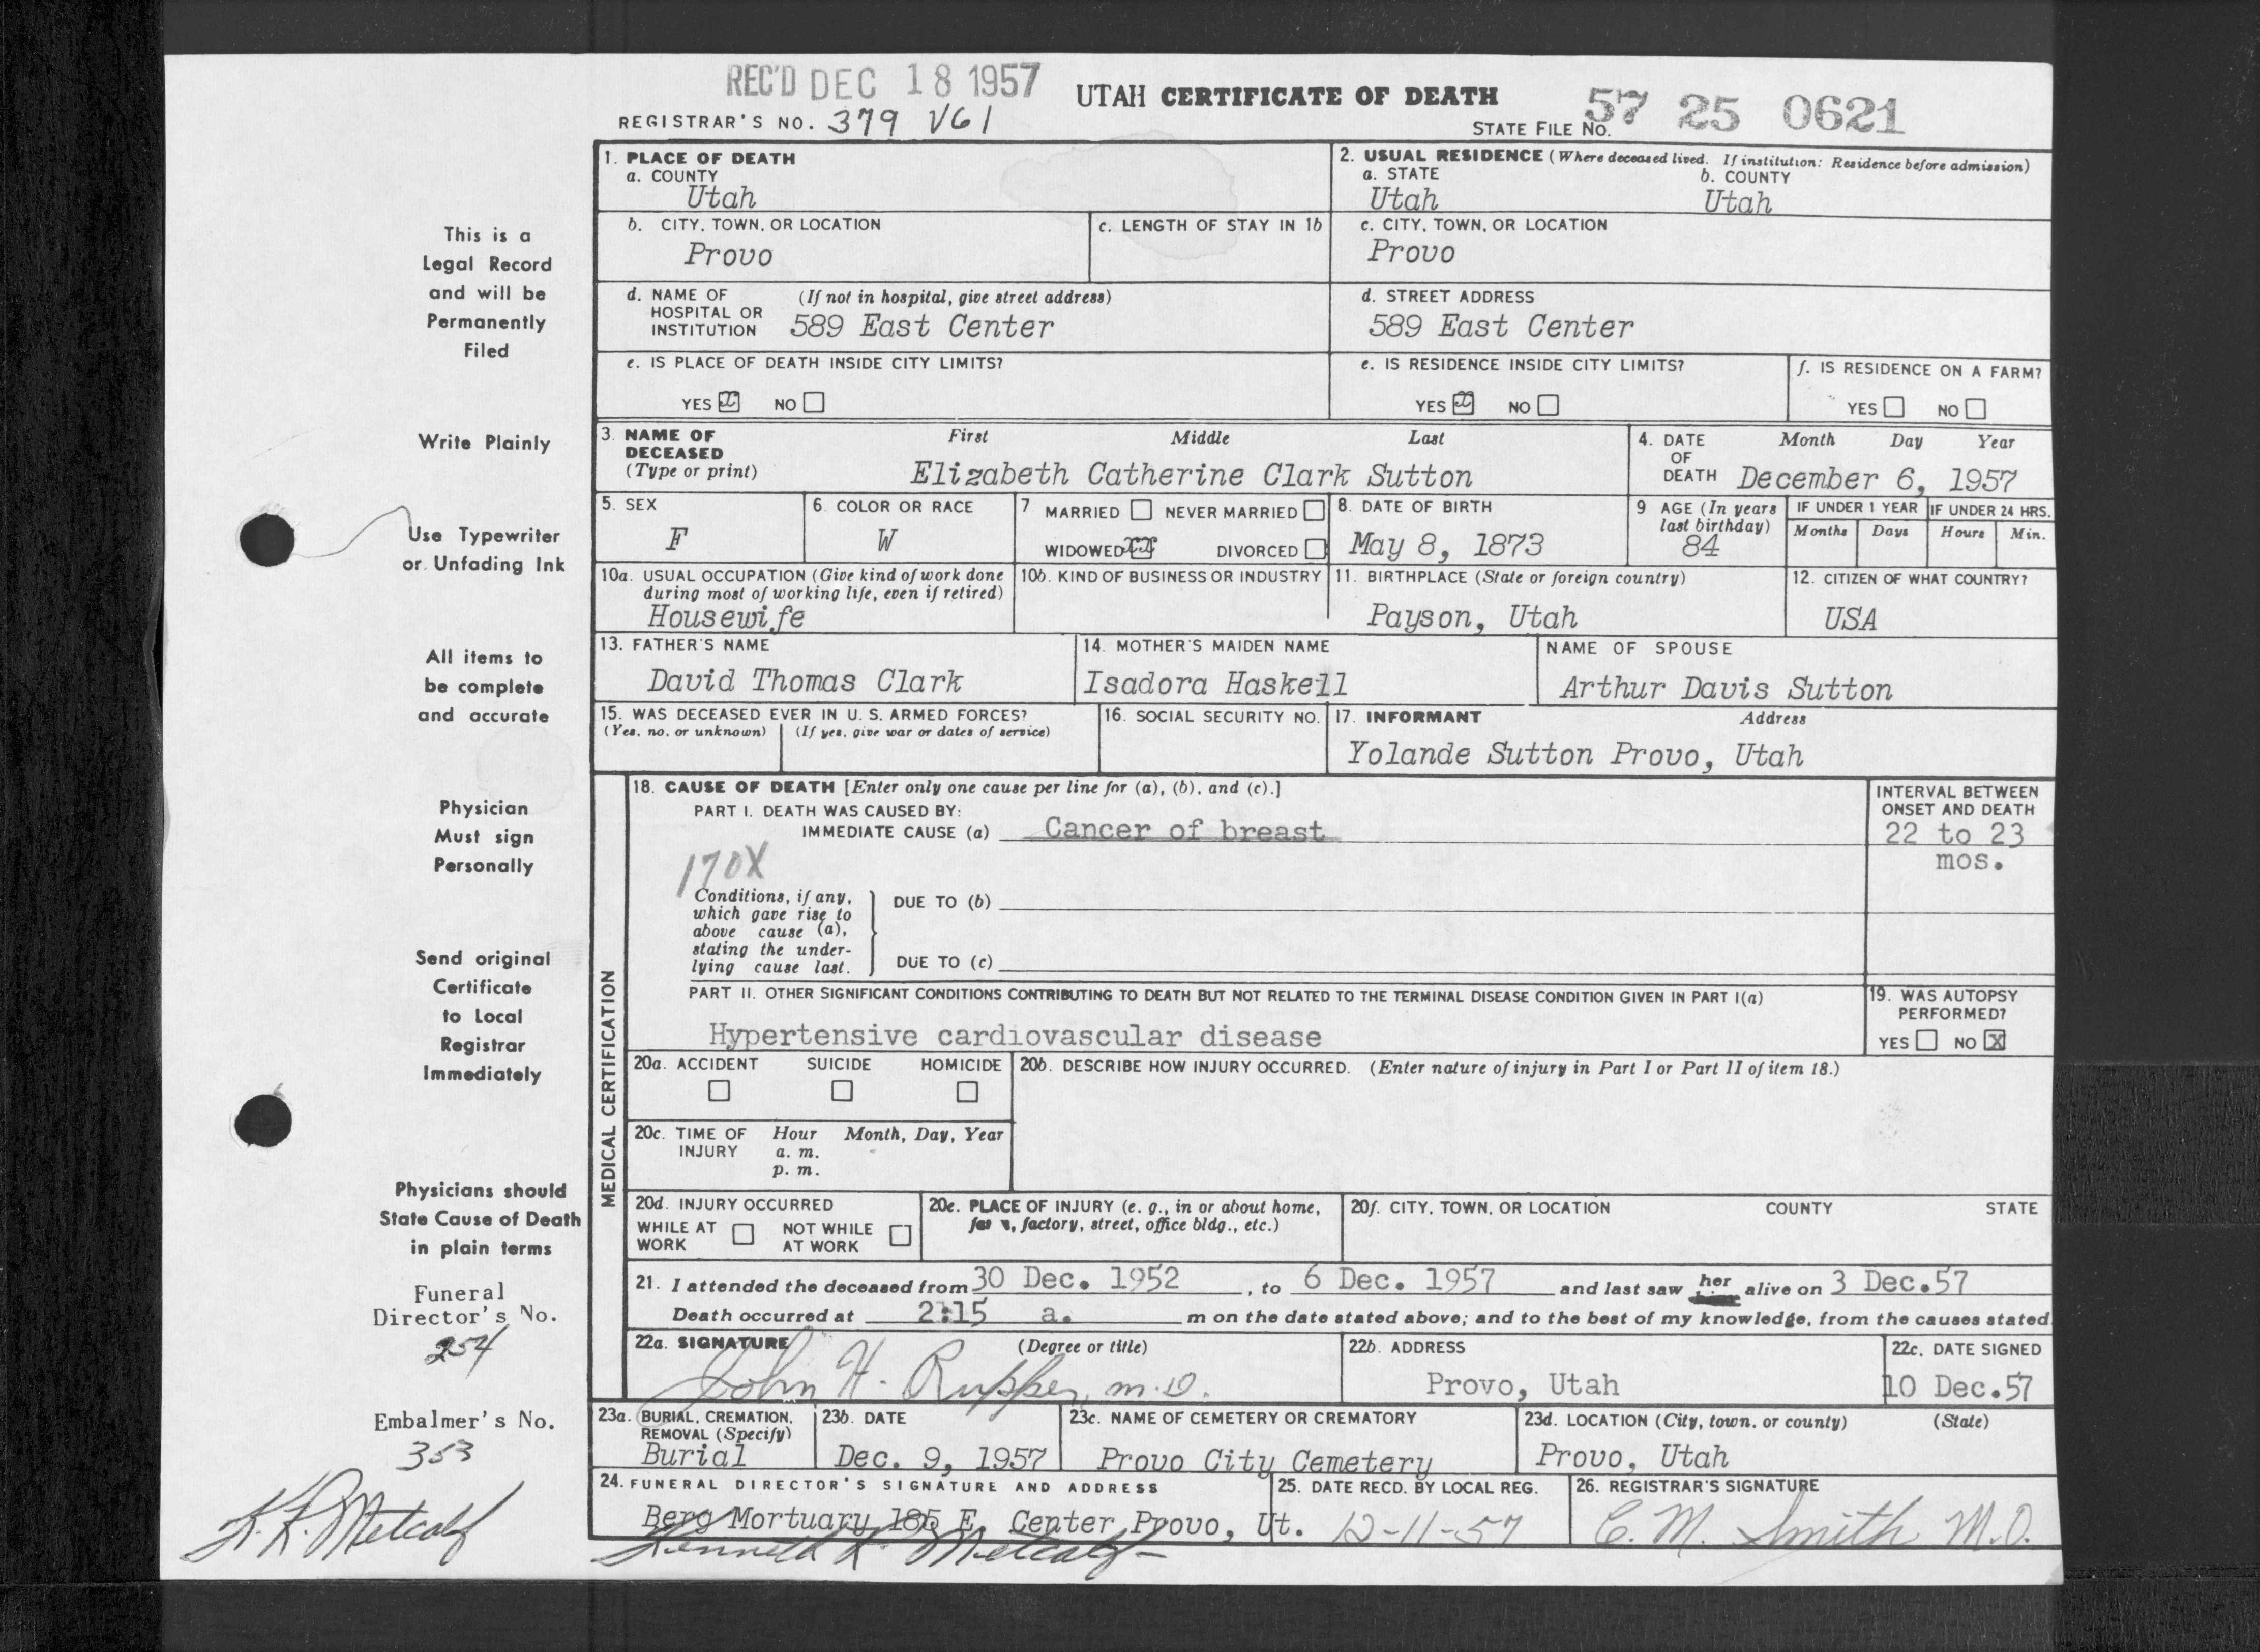 REC'D DEC 18 1957
UTAH CERTIFICATE OF DEATH
57 25 0621
REGISTRAR'S NO. 379 V61
STATE FILE NO.
1. PLACE OF DEATH
a. COUNTY
Utah
2. USUAL RESIDENCE (Where deceased lived. If institution: Residence before admission)
a. STATE b. COUNTY
Utah Utah
b. CITY, TOWN, OR LOCATION
Provo
c. LENGTH OF STAY IN 1b
c. CITY, TOWN, OR LOCATION
Provo
d. NAME OF (If not in hospital, give street address)
HOSPITAL OR
INSTITUTION 589 East Center
d. STREET ADDRESS
589 East Center
e. IS PLACE OF DEATH INSIDE CITY LIMITS?
YES x NO
e. IS RESIDENCE INSIDE CITY LIMITS?
YES x NO
f. IS RESIDENCE ON A FARM?
YES NO
3. NAME OF First Middle Last
DECEASED
(Type or print) Elizabeth Catherine Clark Sutton
4. DATE Month Day Year
OF
DEATH December 6, 1957
5. SEX
F
6. COLOR OR RACE
W
7 MARRIED NEVER MARRIED
WIDOWED xx DIVORCED
8. DATE OF BIRTH
May 8, 1873
9 AGE (In years
last birthday)
84
IF UNDER 1 YEAR IF UNDER 24 HRS.
Months Days Hours Min.
10a. USUAL OCCUPATION (Give kind of work done
during most of working life, even if retired)
Housewife
10b. KIND OF BUSINESS OR INDUSTRY
11. BIRTHPLACE (State or foreign country)
Payson, Utah
12. CITIZEN OF WHAT COUNTRY?
USA
13. FATHER'S NAME
David Thomas Clark
14. MOTHER'S MAIDEN NAME
Isadora Haskell
NAME OF SPOUSE
Arthur Davis Sutton
15. WAS DECEASED EVER IN U. S. ARMED FORCES?
(Yes, no, or unknown) (If yes, give war or dates of service)
16. SOCIAL SECURITY NO.
17. INFORMANT Address
Yolande Sutton Provo, Utah
MEDICAL CERTIFICATION
18. CAUSE OF DEATH [Enter only one cause per line for (a), (b), and (c).]
PART I. DEATH WAS CAUSED BY:
IMMEDIATE CAUSE (a) Cancer of breast
INTERVAL BETWEEN
ONSET AND DEATH
22 to 23
mos.
170X
Conditions, if any,
which gave rise to
above cause (a),
stating the under-
lying cause last.
DUE TO (b)
DUE TO (c)
PART II. OTHER SIGNIFICANT CONDITIONS CONTRIBUTING TO DEATH BUT NOT RELATED TO THE TERMINAL DISEASE CONDITION GIVEN IN PART I(a)
Hypertensive cardiovascular disease
19. WAS AUTOPSY
PERFORMED?
YES NO X
20a. ACCIDENT SUICIDE HOMICIDE
20b. DESCRIBE HOW INJURY OCCURRED. (Enter nature of injury in Part I or Part II of item 18.)
20c. TIME OF Hour Month, Day, Year
INJURY a. m.
p. m.
20d. INJURY OCCURRED
WHILE AT NOT WHILE
WORK AT WORK
20e. PLACE OF INJURY (e. g., in or about home,
factory, street, office bldg., etc.)
20f. CITY, TOWN, OR LOCATION COUNTY STATE
21. I attended the deceased from 30 Dec. 1952, to 6 Dec. 1957 and last saw her alive on 3 Dec.57
Death occurred at 2:15 a. m on the date stated above; and to the best of my knowledge, from the causes stated
22a. SIGNATURE (Degree or title)
John H. Rupper, M.D.
22b. ADDRESS
Provo, Utah
22c. DATE SIGNED
10 Dec.57
23a. BURIAL, CREMATION,
REMOVAL (Specify)
Burial
23b. DATE
Dec. 9, 1957
23c. NAME OF CEMETERY OR CREMATORY
Provo City Cemetery
23d. LOCATION (City, town, or county) (State)
Provo, Utah
24. FUNERAL DIRECTOR'S SIGNATURE AND ADDRESS
Berg Mortuary 185 E. Center Provo, Ut.
Kenneth K. Metcalf
25. DATE RECD. BY LOCAL REG.
12-11-57
26. REGISTRAR'S SIGNATURE
C. M. Smith M.D.
This is a
Legal Record
and will be
Permanently
Filed
Write Plainly
Use Typewriter
or Unfading Ink
All items to
be complete
and accurate
Physician
Must sign
Personally
Send original
Certificate
to Local
Registrar
Immediately
Physicians should
State Cause of Death
in plain terms
Funeral
Director's No.
254
Embalmer's No.
353
K. K. Metcalf